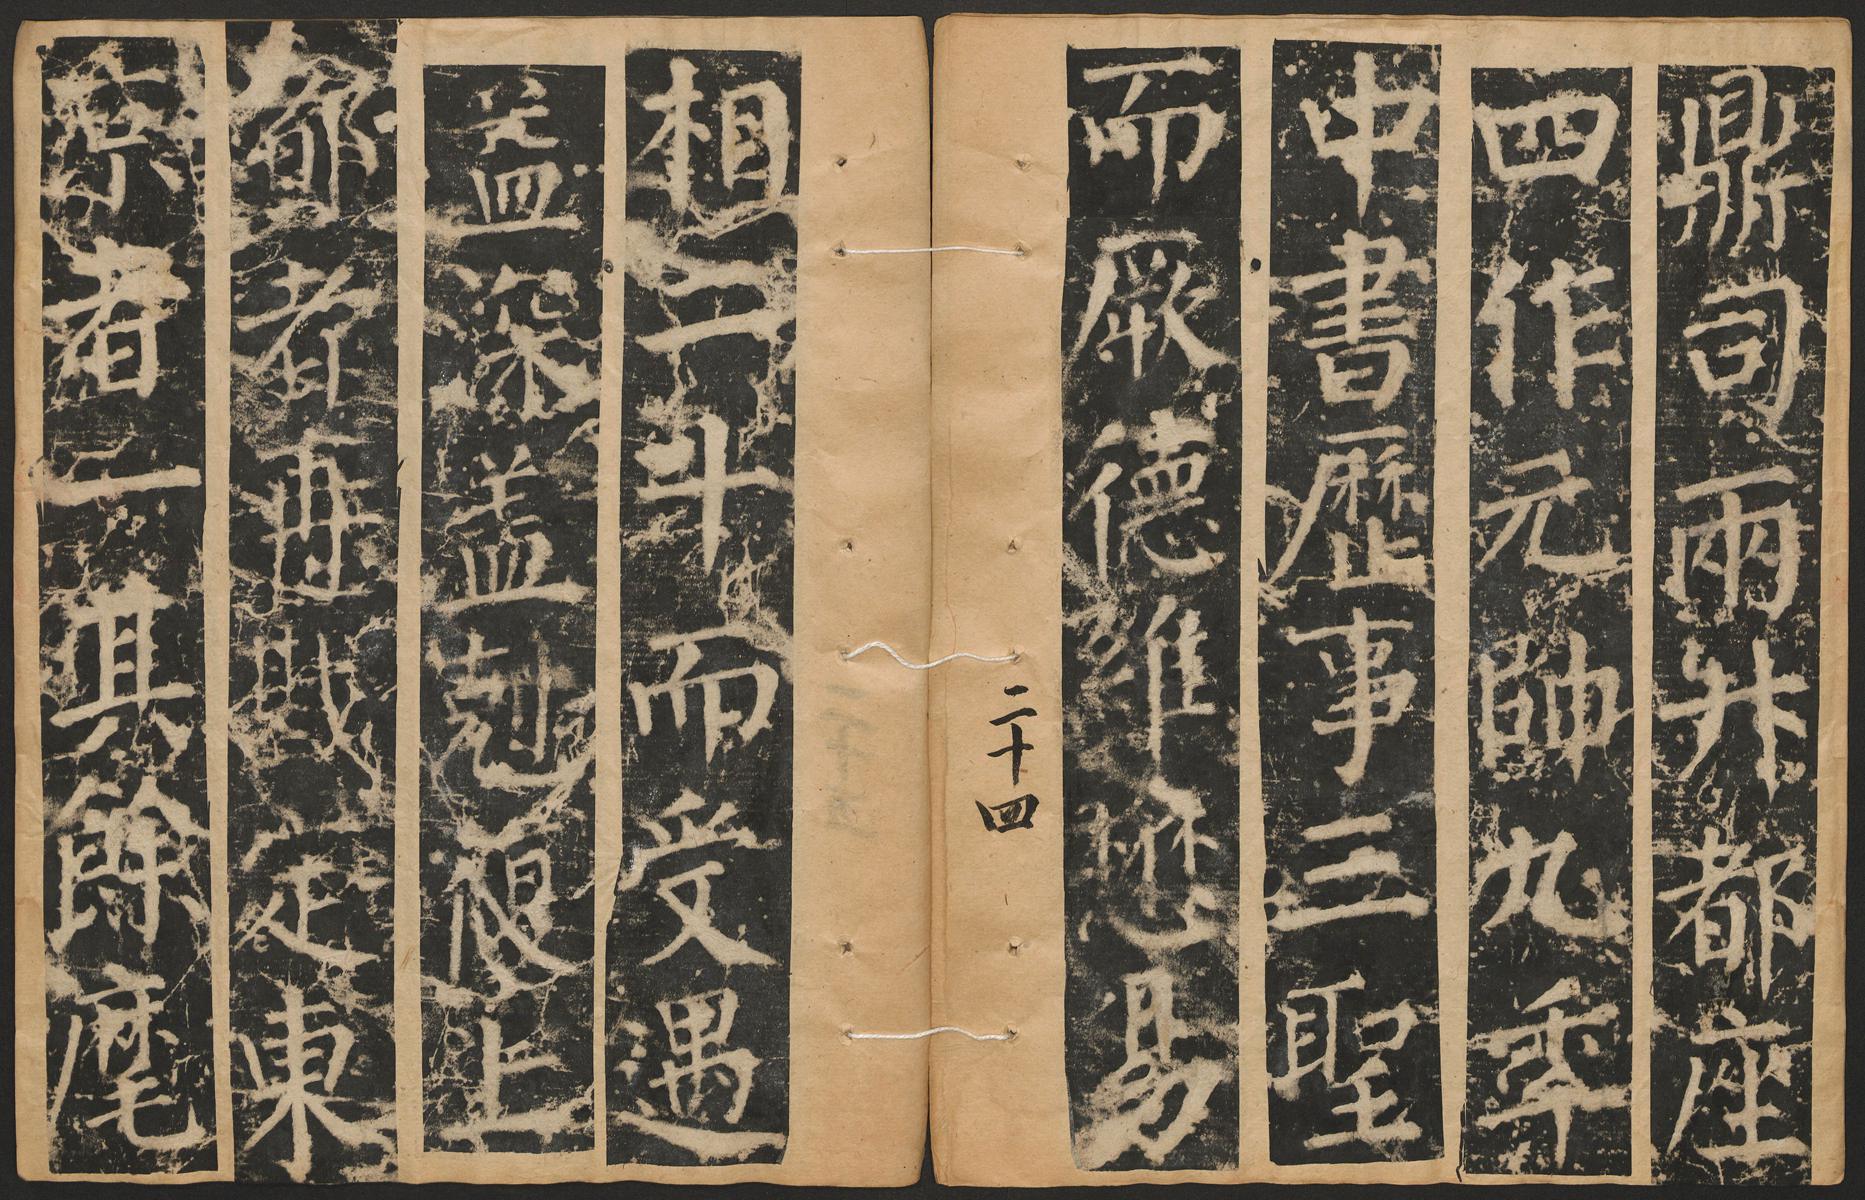 鼎司兩升都座
四作元帥九秊
中書歷事三聖
而厥德維懋易
二十四
相二十而受遇
益深盖剋復上
都者再戡定東
京者一其餘麾